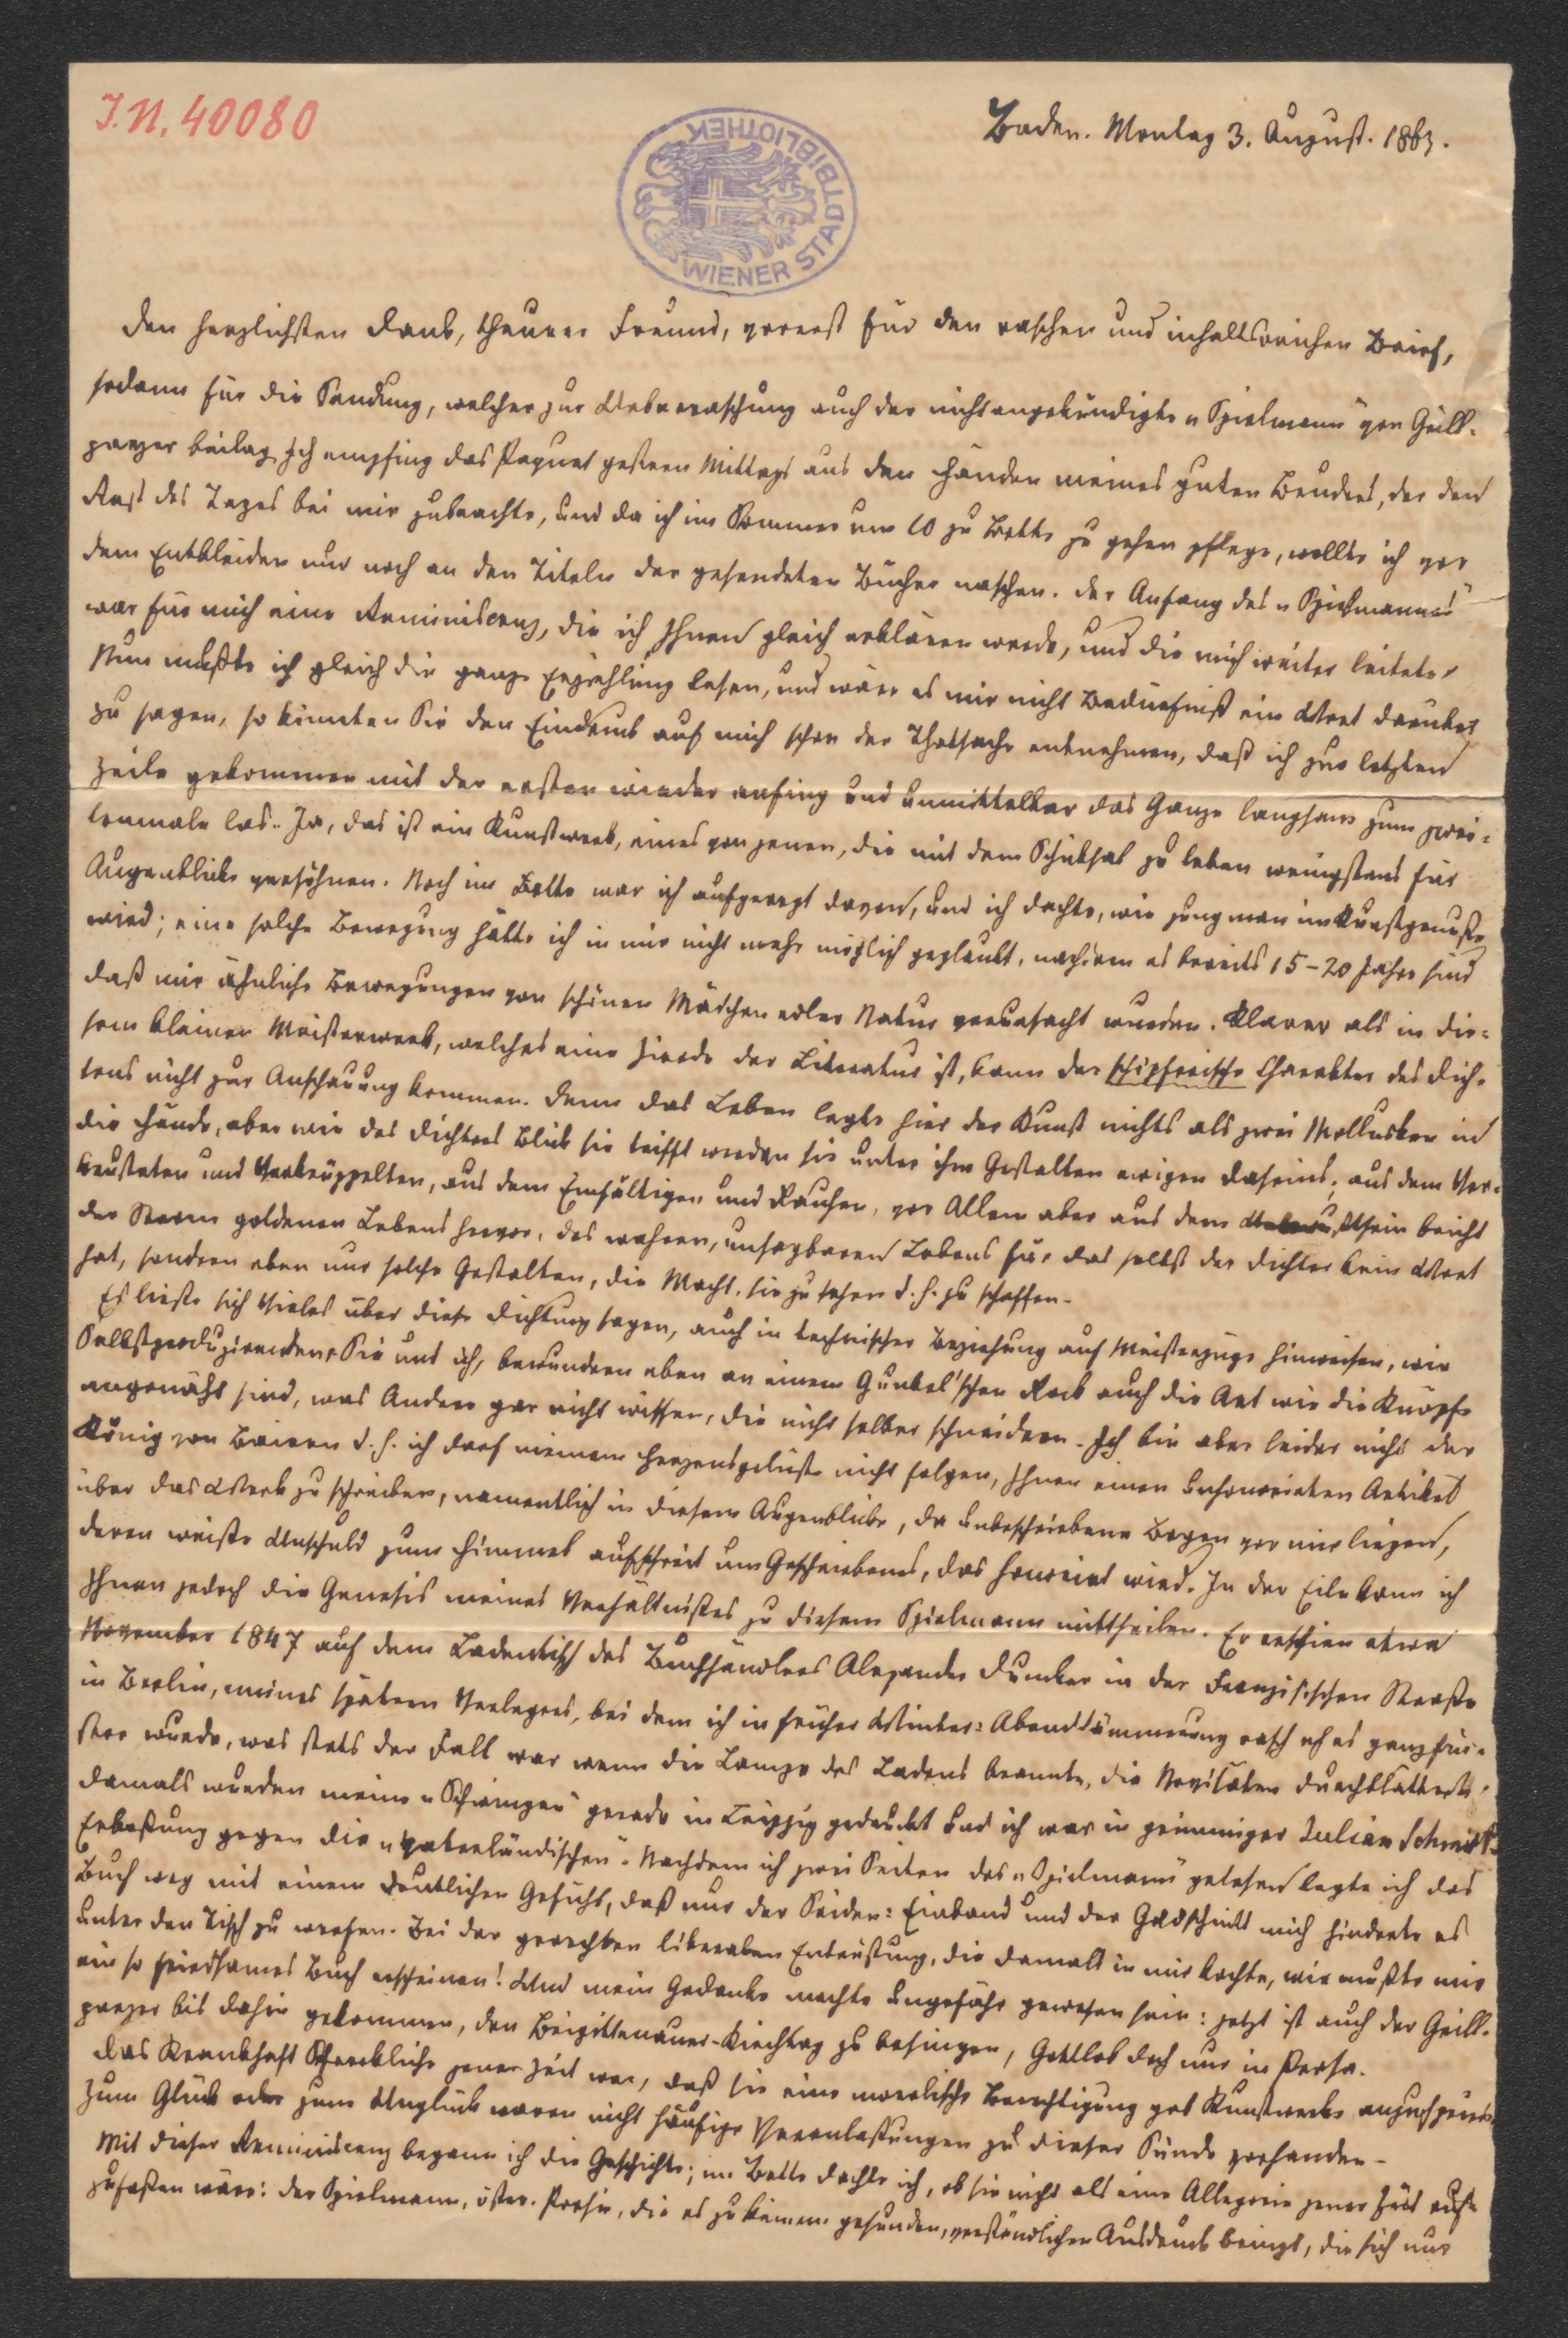 J.N. 40080
WIENER STADTBIBLIOTHEK
Baden. Montag 3. August. 1863.
Den herzlichsten Dank, theurer Freund, vorerst für den raschen und inhaltsreichen Brief,
sodann für die Sendung, welcher zur Ueberraschung auch der nicht angekündigte „Spielmann" von Grill-
parzer beilag. Ich empfing das Paquet gestern Mittags aus den Händen meines guten Bruders, der den
Rest des Tages bei mir zubrachte, und da ich im Sommer um 10 zu Bette zu gehen pflege, wollte ich vor
dem Entkleiden nur noch an den Titeln der gesendeten Bücher naschen. Der Anfang des „Spielmannes"
war für mich eine Reminiscenz, die ich Ihnen gleich erklären werde, und die mich weiter leitete.
Nun mußte ich gleich die ganze Erzählung lesen, und wäre es mir nicht Bedürfniß ein Wort darüber
zu sagen, so könnten Sie den Eindruck auf mich schon der Thatsache entnehmen, daß ich zur letzten
Zeile gekommen mit der ersten wieder anfing und unmittelbar das Ganze langsam zum zwei-
tenmale las. Ja, das ist ein Kunstwerk, eines von jenen, die mit dem Schicksal zu leben wenigstens für
Augenblicke versöhnen. Noch im Bette war ich aufgeregt davon, und ich dachte, wie jung man im Kunstgenuße
wird; eine solche Bewegung hätte ich in mir nicht mehr möglich geglaubt, nachdem es bereits 15-20 Jahre sind
daß mir ähnliche Bewegungen von schönen Mädchen edler Natur verursacht wurden. Klarer als in die-
sem kleinen Meisterwerk, welches eine Zierde der Literatur ist, kann der schöpferische Charakter des Dich-
tens nicht zur Anschauung kommen. Denn das Leben legte hier der Kunst nichts als zwei Mollusken in
die Hände, aber wie des Dichters Blick sie trifft werden sie unter ihm Gestalten ewigen Daseins; aus dem Ver-
krusteten und Verkrüppelten, aus dem Einfältigen und Rauhen, vor Allem aber aus dem Unbewußtsein bricht
der Strom goldenen Lebens hervor, des wahren, unsagbaren Lebens für das selbst der Dichter kein Wort
hat, sondern eben nur solche Gestalten, die Macht, sie zu sehen d. h. zu schaffen.
Es ließe sich Vieles über diese Dichtung sagen, auch in technischer Beziehung auf Meisterzüge hinweisen, wir
Selbstproduzirenden, Sie und ich, bewundern eben an einem Gunkel'schen Rock auch die Art wie die Knöpfe
angenäht sind, was Andere gar nicht wissen, die nicht selber schneidern. Ich bin aber leider nicht der
König von Baiern d. h. ich darf meinem Herzensgelüste nicht folgen, Ihnen einen unhonorirten Artikel
über das Werk zu schreiben, namentlich in diesem Augenblicke, da unbeschriebene Bogen vor mir liegen,
deren weiße Unschuld zum Himmel aufschreit um Geschriebenes, das honorirt wird. In der Eile kann ich
Ihnen jedoch die Genesis meines Verhältnißes zu diesem Spielmann mittheilen. Er erschien etwa
November 1847 auf dem Ladentisch des Buchhändlers Alexander Duncker in der Französischen Straße
in Berlin, meines spätern Verlegers, bei dem ich in früher Winter-Abenddämmerung rasch eh es ganz fin-
ster wurde, was stets der Fall war wenn die Lampe des Ladens brannte, die Novitäten durchblätterte.
Damals wurden meine „Schwingen" gerade in Leipzig gedruckt und ich war in grimmiger Julian Schmidt-
Erboßung gegen die „Vaterländischen". Nachdem ich zwei Seiten des „Spielmann" gelesen legte ich das
Buch weg mit einem deutlichen Gefühl, daß nur der Seiden-Einband und der Goldschnitt mich hinderte es
unter den Tisch zu werfen. Bei der gerechten liberalen Entrüstung, die damals in mir kochte, wie mußte mir
ein so friedsames Buch erscheinen! Und mein Gedanke mochte ungefähr gewesen sein: jetzt ist auch der Grill-
parzer bis dahin gekommen, den Brigittenauer-Kirchtag zu besingen, Gottlob doch nur in Prosa.
Das Krankhaft Schreckliche jener Zeit war, daß sie eine moralische Berechtigung gab Kunstwerke anzuspeien.
Zum Glück oder zum Unglück waren nicht häufige Veranlaßungen zu dieser Sünde vorhanden.
Mit dieser Reminiscenz begann ich die Geschichte; im Bette dachte ich, ob sie nicht als eine Allegorie jener Zeit auf-
zufaßen wäre: der Spielmann, österr. Poesie, die es zu keinem gesunden, verständlichen Ausdruck bringt, die sich nur